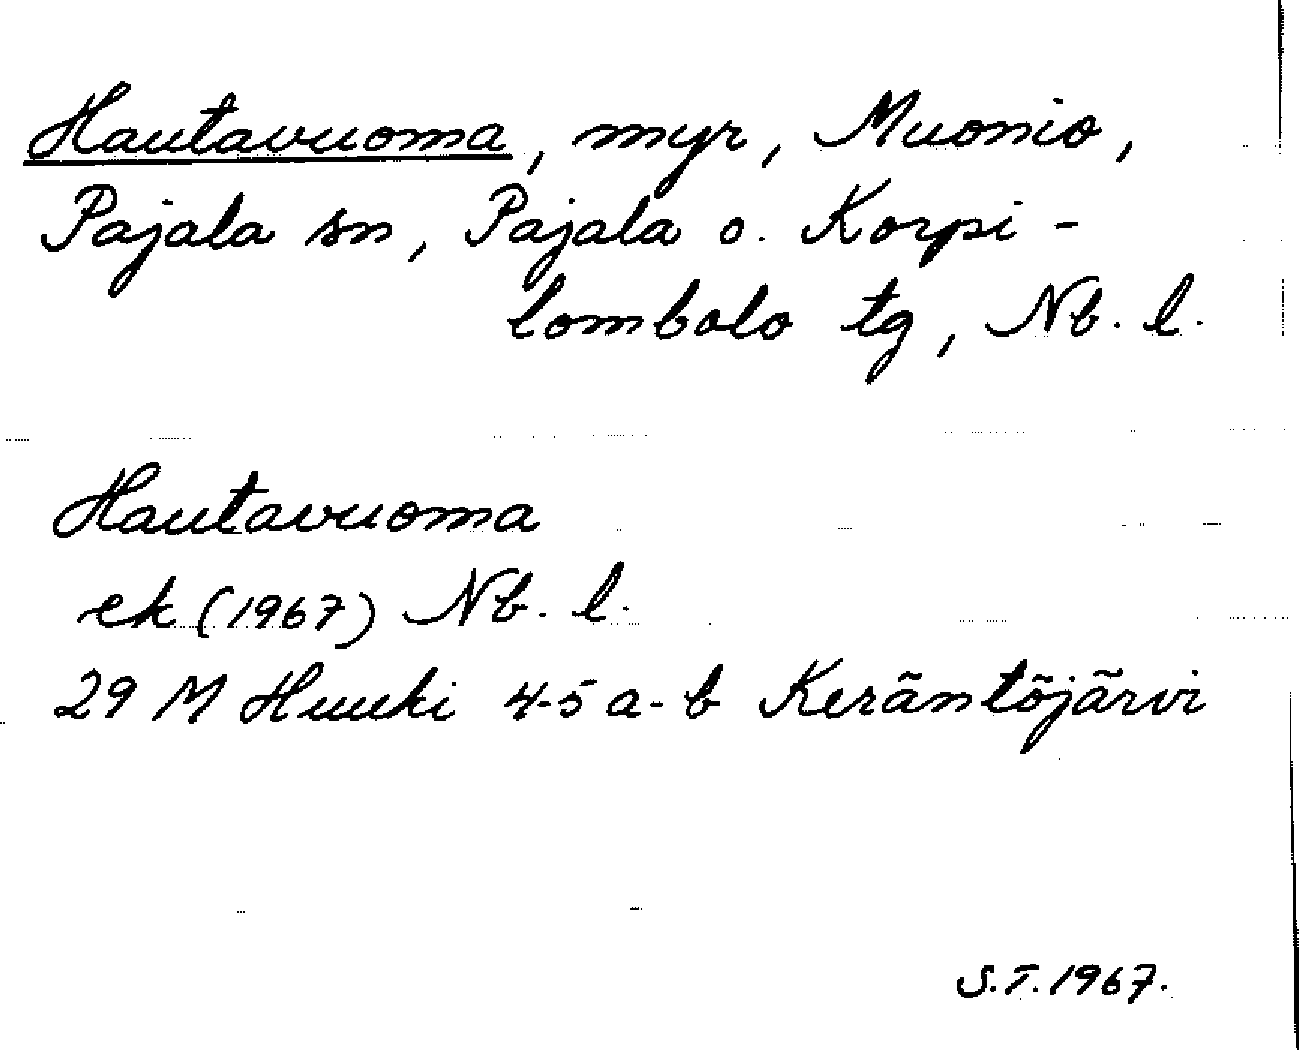 Hautavuoma, myr, Muonio,
Pajala sn, Pajala o. Korpi-
lombolo tg, Nb. l.
Hautavuoma
ek (1967) Nb. l.
29 M Huuki 4-5 a-b Keräntöjärvi
S.T. 1967.